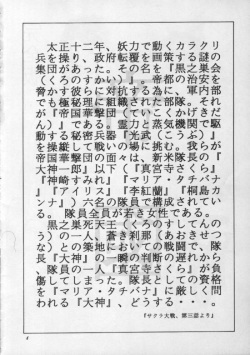 大正十二年、妖力で動くカラクリ
兵を操り、政府転覆を画策する謎の
集団があった。その名を『黒之巣会
(くろのすかい)』。帝都の治安を
脅かす彼らに対抗する為に、軍内部
でも極秘理に組織された部隊。それ
が『帝国華撃団(ていこくかげきだ
ん)』である。霊力と蒸気機関で駆
動する秘密兵器『光武(こうぶ)』
を操縦して戦いの場に挑む。我らが
帝国華撃団の面々は、新米隊長の『
大神一郎』以下(『真宮寺さくら』
『神崎すみれ』『マリア・タチバナ』
『アイリス』『李紅蘭』『桐島カ
ンナ』)六名の隊員で構成されてい
る。 隊員全員が若き女性である。
黒之巣死天王(くろのすしてんの
う)の一人、蒼き刹那(あおきせつ
な)との築地においての戦闘で、隊
長『大神』の一瞬の判断の遅れから
、隊員の一人『真宮寺さくら』が負
傷してしまった。隊長としての資格
を『マリア・タチバナ』に厳しく問
われる『大神』、どうする・・・。
『サクラ大戦、第三話より』
4